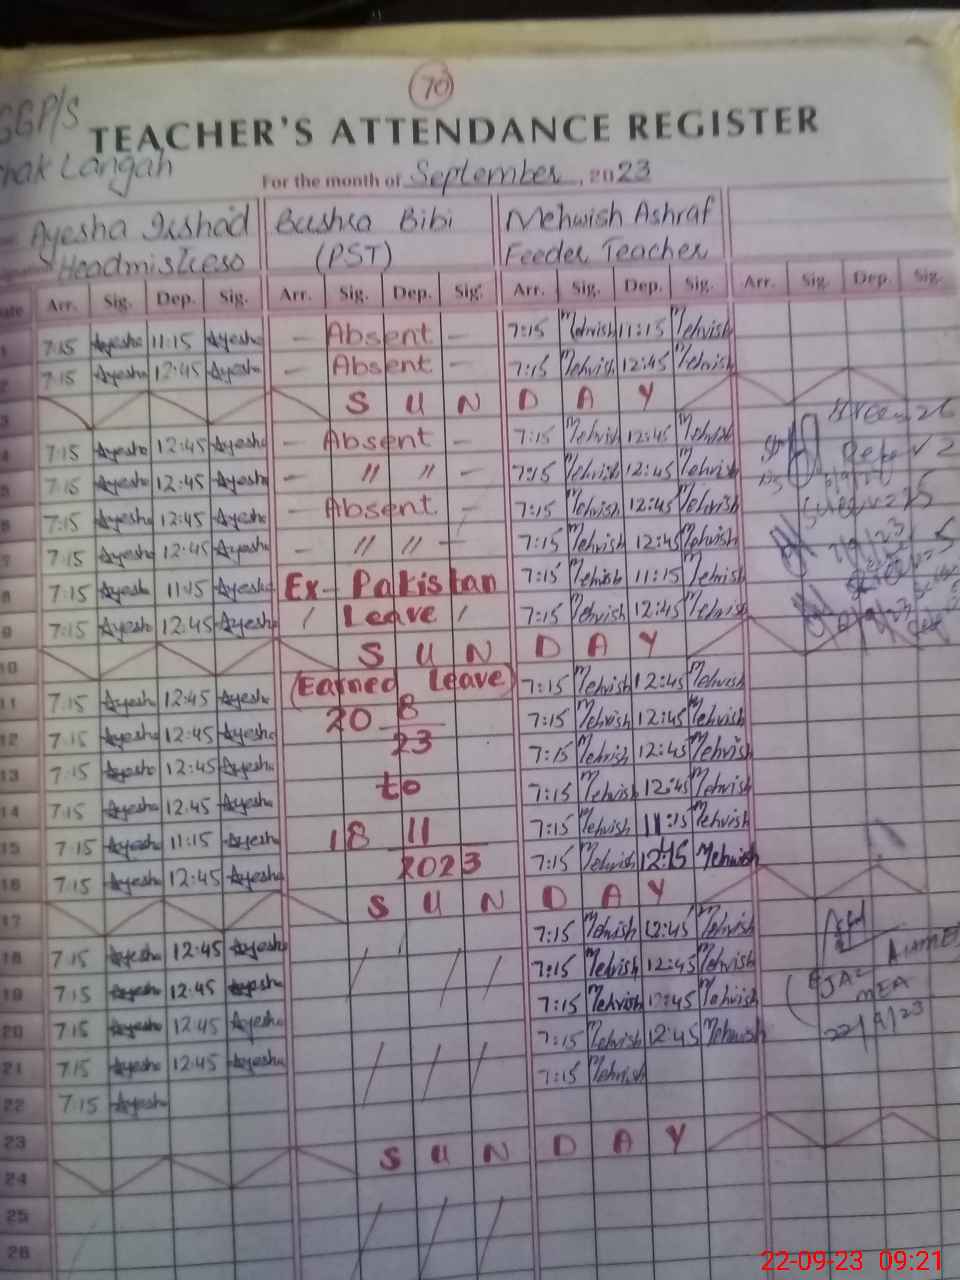 70
GGP/S
TEACHER'S ATTENDANCE REGISTER
Chak Langah
For the month of September, 2023
Ayesha Irshad Bushra Bibi Mehwish Ashraf
Headmistress (PST) Feeder Teacher
Date Arr. Sig. Dep. Sig. Arr. Sig. Dep. Sig. Arr. Sig. Dep. Sig. Arr. Sig. Dep. Sig.
1 7:15 Ayesha 11:15 Ayesha - Absent - 7:15 Mehwish 11:15 Mehwish
2 7:15 Ayesha 12:45 Ayesha - Absent - 7:15 Mehwish 12:45 Mehwish
3 S U N D A Y
4 7:15 Ayesha 12:45 Ayesha - Absent - 7:15 Mehwish 12:45 Mehwish
5 7:15 Ayesha 12:45 Ayesha - " " - 7:15 Mehwish 12:45 Mehwish
6 7:15 Ayesha 12:45 Ayesha - Absent - 7:15 Mehwish 12:45 Mehwish
7 7:15 Ayesha 12:45 Ayesha - " " - 7:15 Mehwish 12:45 Mehwish
8 7:15 Ayesha 11:15 Ayesha Ex-Pakistan 7:15 Mehwish 11:15 Mehwish
9 7:15 Ayesha 12:45 Ayesha Leave 7:15 Mehwish 12:45 Mehwish
10 S U N D A Y
11 7:15 Ayesha 12:45 Ayesha (Earned Leave) 7:15 Mehwish 12:45 Mehwish
12 7:15 Ayesha 12:45 Ayesha 20 8 7:15 Mehwish 12:45 Mehwish
13 7:15 Ayesha 12:45 Ayesha 23 7:15 Mehwish 12:45 Mehwish
14 7:15 Ayesha 12:45 Ayesha to 7:15 Mehwish 12:45 Mehwish
15 7:15 Ayesha 11:15 Ayesha 18 11 7:15 Mehwish 11:15 Mehwish
16 7:15 Ayesha 12:45 Ayesha 2023 7:15 Mehwish 12:45 Mehwish
17 S U N D A Y
18 7:15 Ayesha 12:45 Ayesha 7:15 Mehwish 12:45 Mehwish
19 7:15 Ayesha 12:45 Ayesha 7:15 Mehwish 12:45 Mehwish
20 7:15 Ayesha 12:45 Ayesha 7:15 Mehwish 12:45 Mehwish
21 7:15 Ayesha 12:45 Ayesha 7:15 Mehwish 12:45 Mehwish
22 7:15 Ayesha 7:15 Mehwish
MEA
22/9/23
23
24 S U N D A Y
25
26
22-09-23 09:21